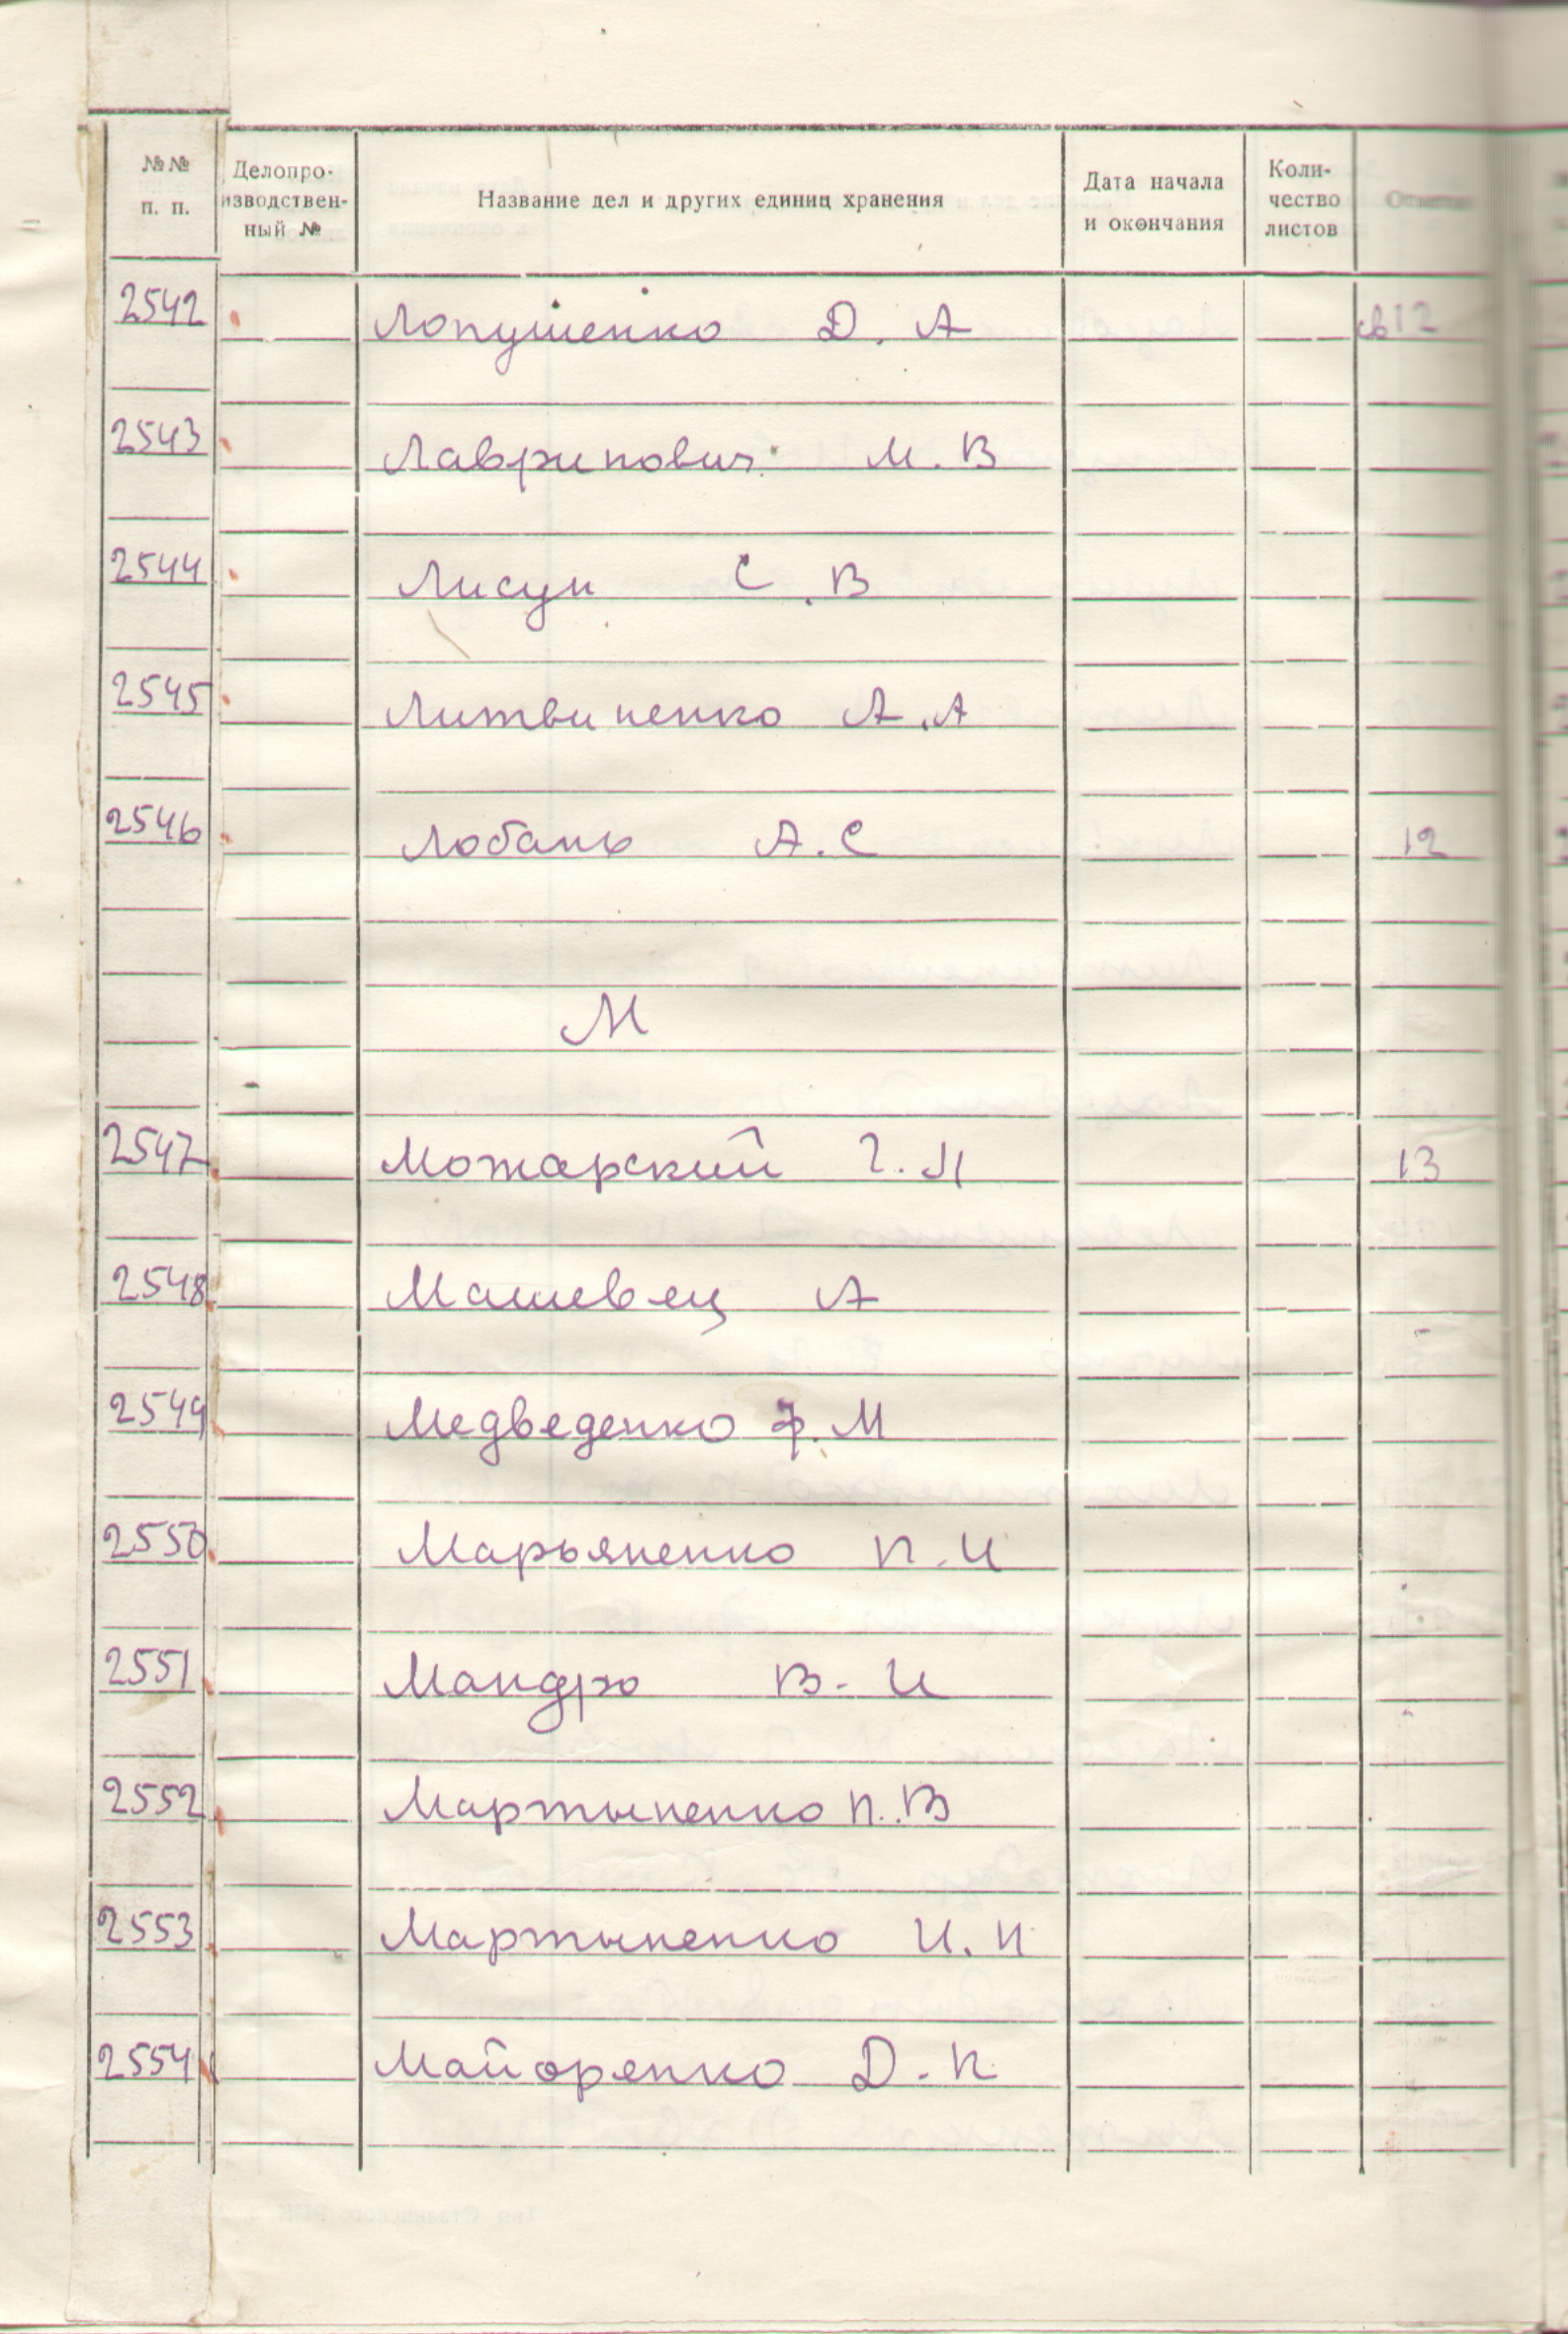 №№ п. п. Делопро- изводствен- ный № Название дел и других единиц хранения Дата начала и окончания Коли- чество листов
2542 Лопушенко Д. А св 12
2543 Лавринович М. В
2544 Лисун С. В
2545 Литвиненко А. А
2546 Лобань А. С 12
М
2547 Можарский Г. М 13
2548 Машевец А
2549 Медведенко Ф. М
2550 Марьяненко П. И
2551 Мандро В. И
2552 Мартыненко П. В
2553 Мартыненко И. П
2554 Майоренко Д. К